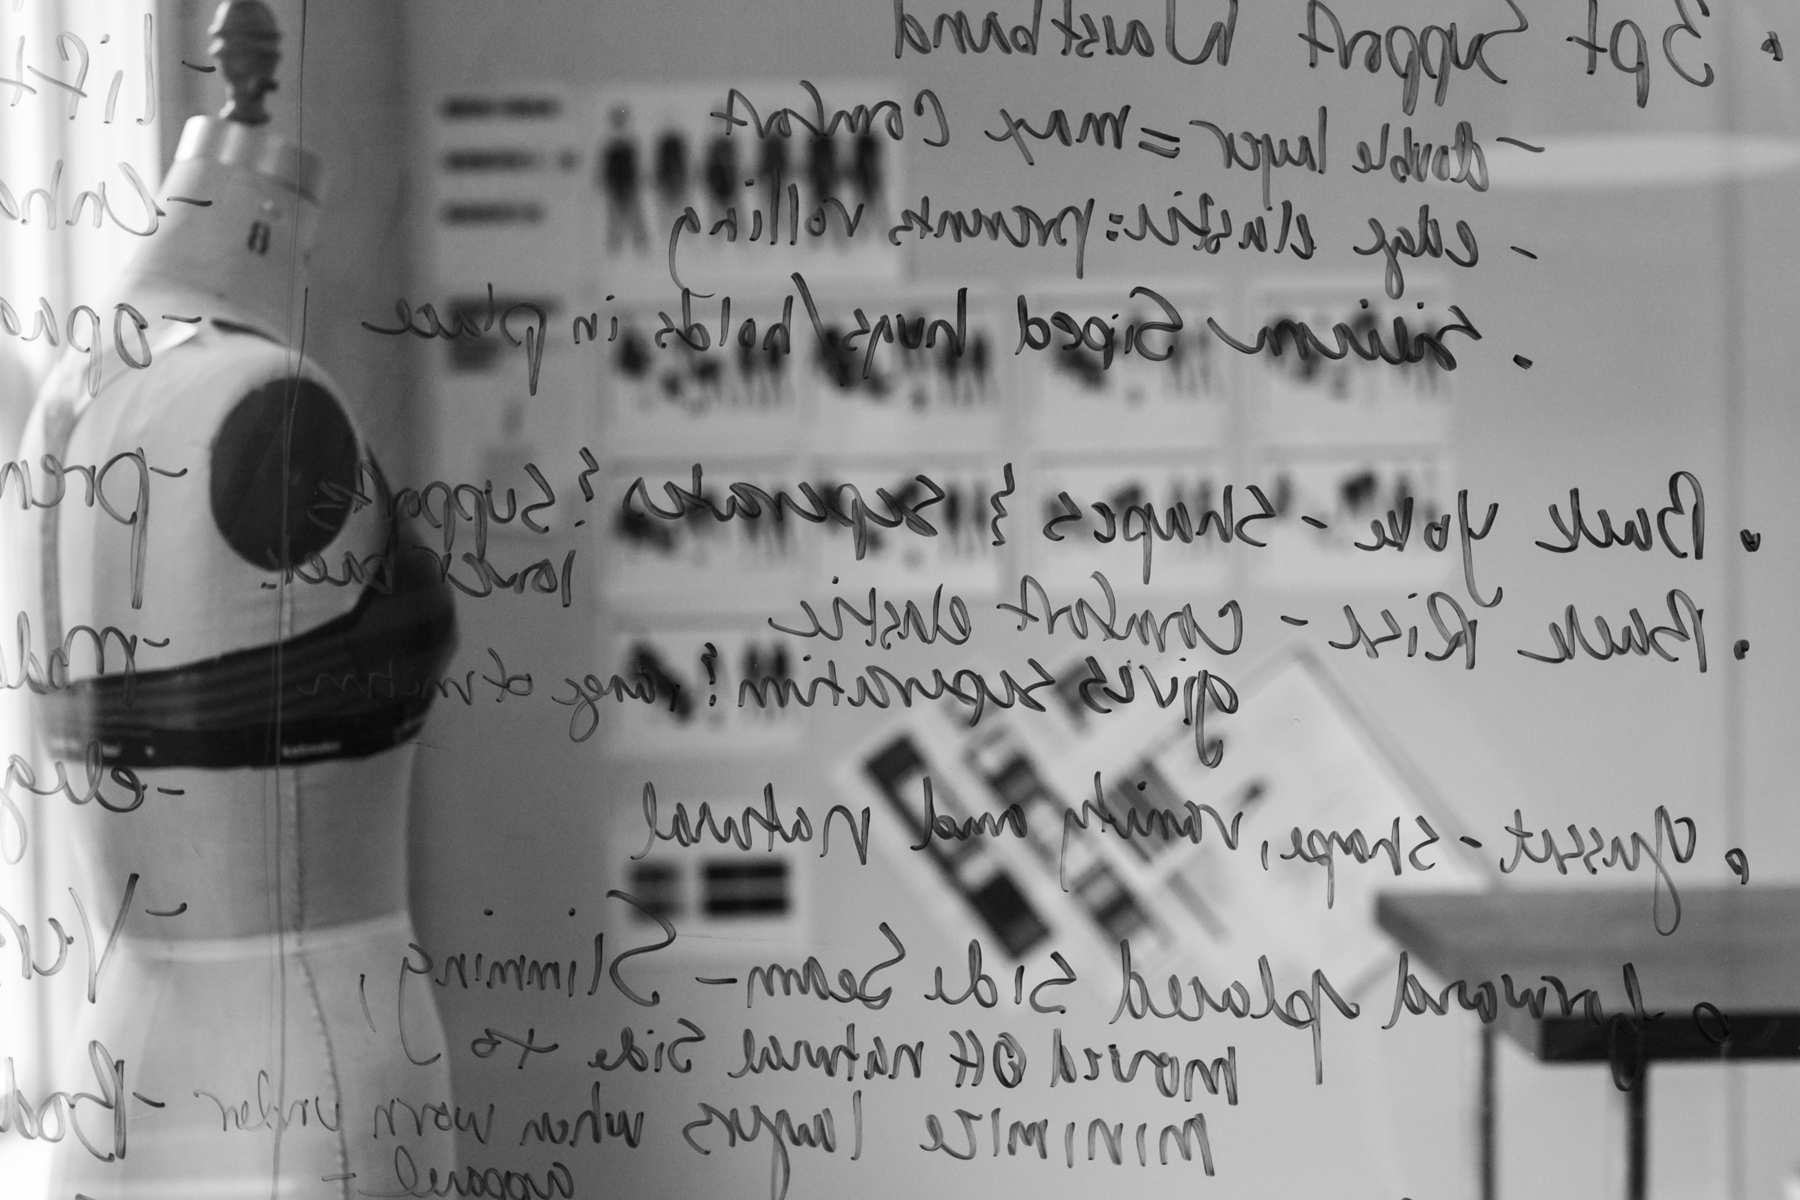 • 3pt Support Waistband
- double layer = max comfort
- edge elastic: prevents rolling
• Silicon Siped hugs/holds in place
• Back Yoke - Shapes & seperates & Supports
lower back.
• Back Rise - comfort elastic
gives seperation & range of motion
• Gusset - Shape, vanity and natural
• forward placed Side Seam - Slimming,
moved Off natural Side to
minimize layers when worn under
apparel -
- Lift
- Enha
- opaq
- pren
- Mode
- eleg
- Ver
- Bod